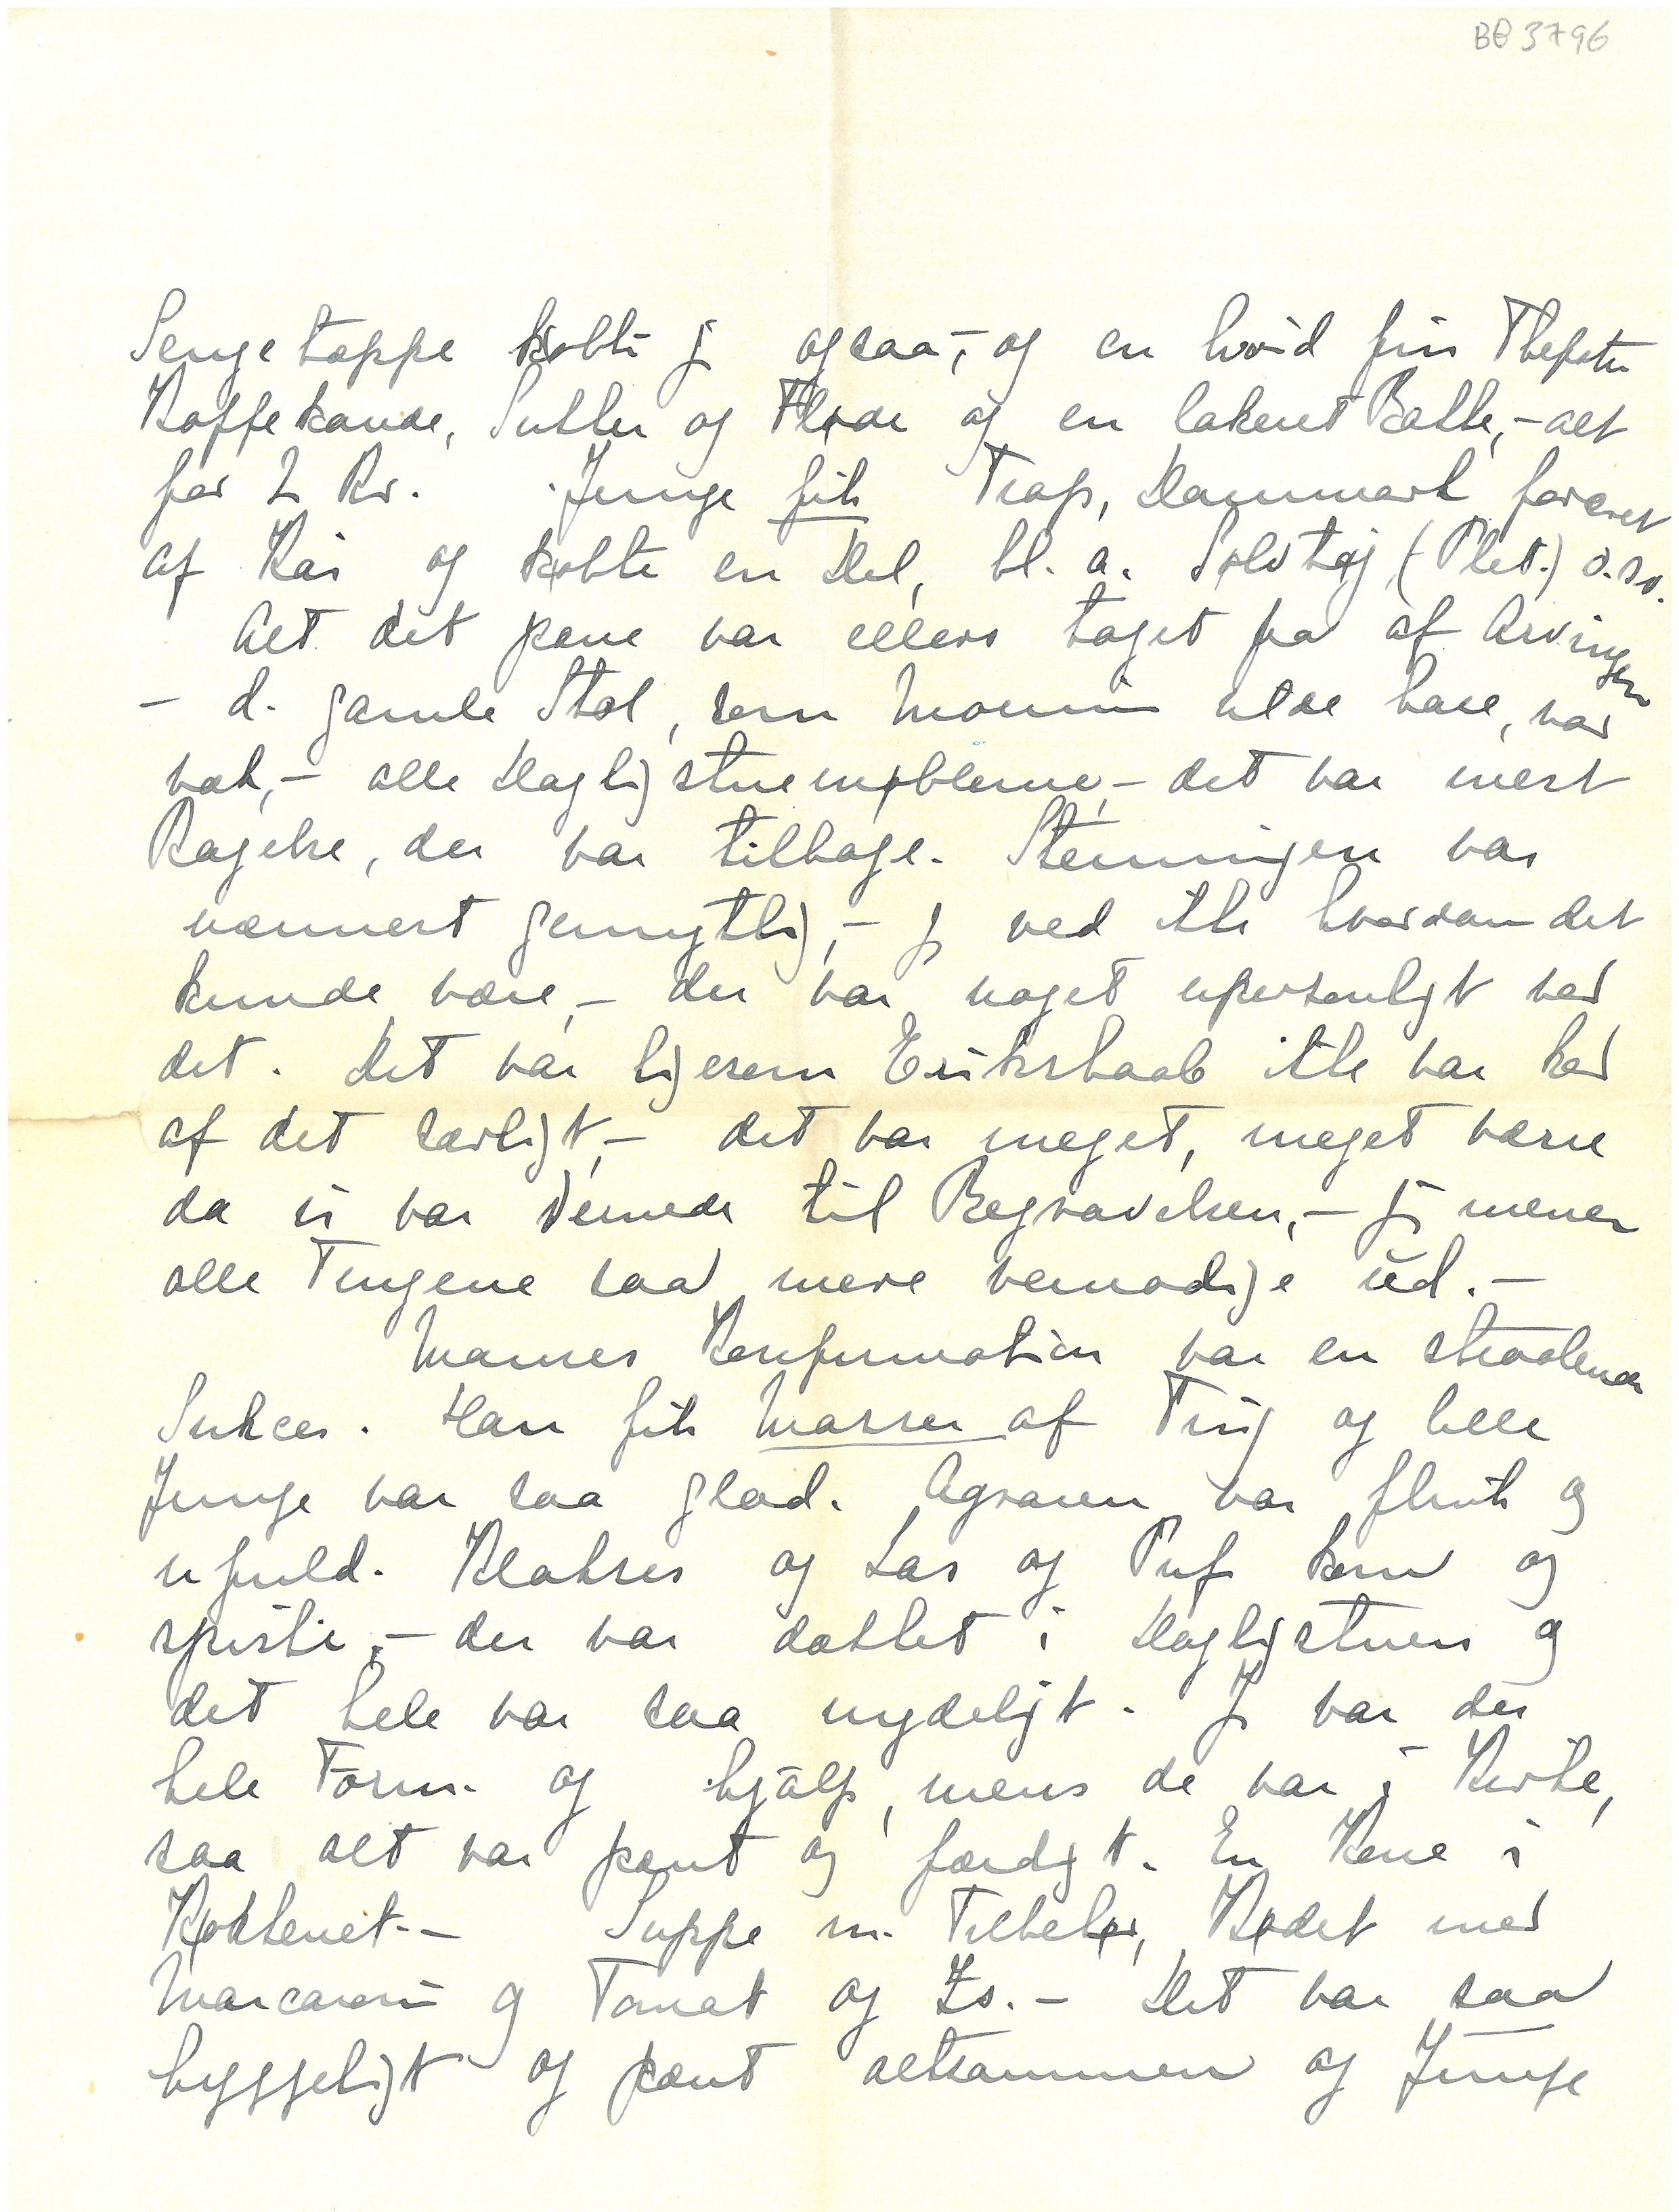 BB 3796
Sengetæppe købte j ogsaa, - og en hvid fin Thepotte
Kaffekande, Sukker og Fløde og en lakeret Bakke, - alt
for 2 Kr. Junge fik Trap, Danmark foræret
af Kai og købte en Del, bl. a. Sølvtøj (Plet.) o.sv.
Alt det pæne var ellers taget fra af Arvingen
- d. gamle Stol, som Mornin vilde have, var
væk, - alle Dagligstuemøblerne, - det var mest
Ragelse, der var tilbage. Stemningen var
nærmest gemytlig, - j ved ikke hvordan det
kunde være, - der var noget upersonligt ved
det. Det var ligesom Erikshaab ikke var ked
af det særligt, - det var meget, meget værre
da vi var dernede til Begravelsen, - j mener
alle Tingene saa mere vemodige ud. -
Manses Konfirmation var en straalende
Sukces. Han fik Masser af Ting og lille
Junge var saa glad. Agraren var flink og
ufuld. Klakses og Las og Puf kom og
spiste, - der var dækket i Dagligstuen og
det hele var saa nydeligt. J var der
hele Form. og hjalp, mens de var i Kirke,
saa alt var pænt og færdigt. En Kone i
Køkkenet. - Suppe m. Tilbehør, Kødet med
Marcaroni og Tomat og Is. - Det var saa
hyggeligt og pænt altsammen og Junge